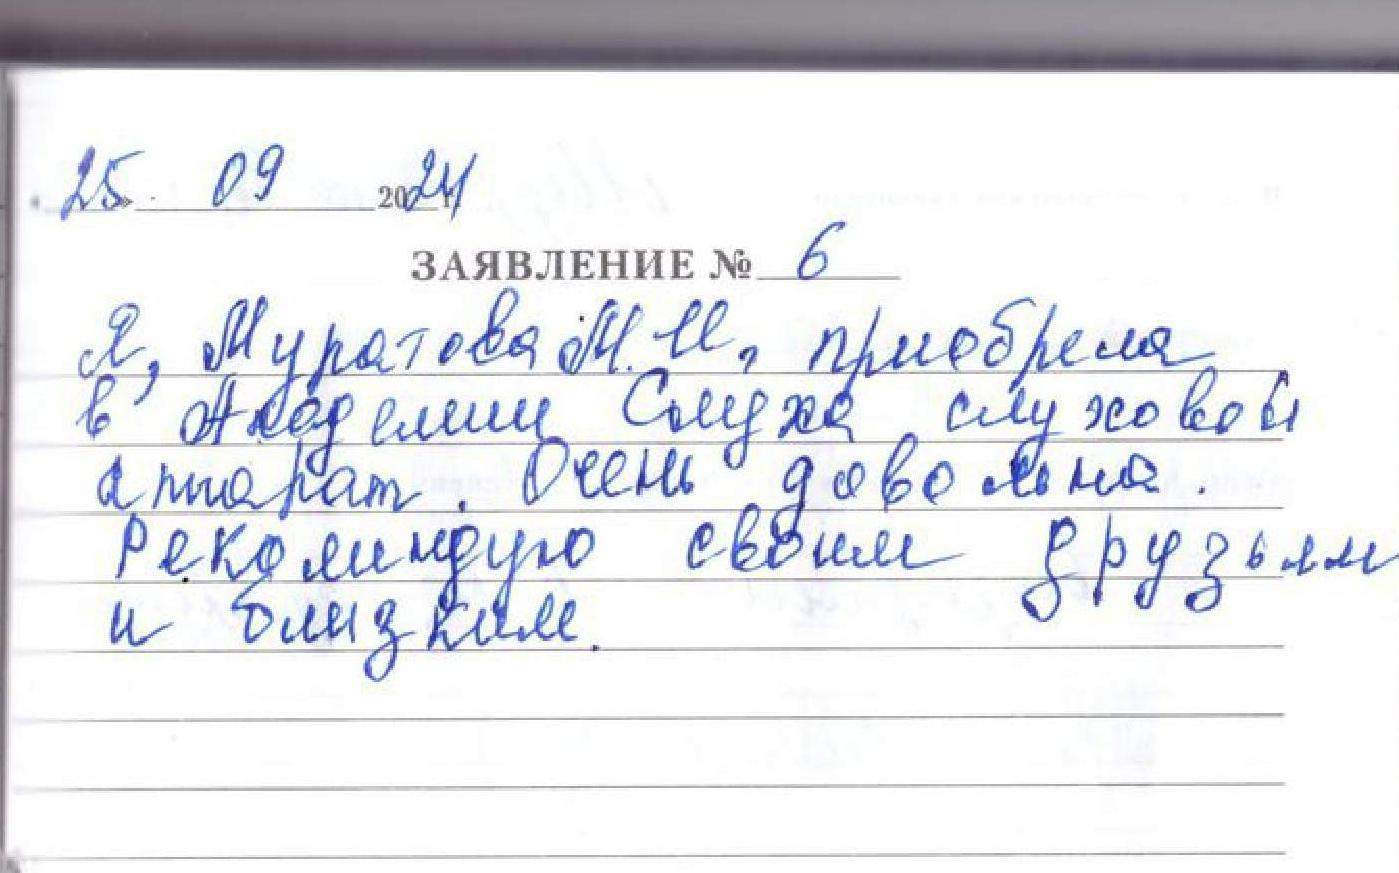 « 25 » 09 2024 г.
ЗАЯВЛЕНИЕ № 6
Я, Муратова М.И., приобрела
в Академии Слуха слуховой
аппарат. Очень довольна.
Рекомендую своим друзьям
и близким.